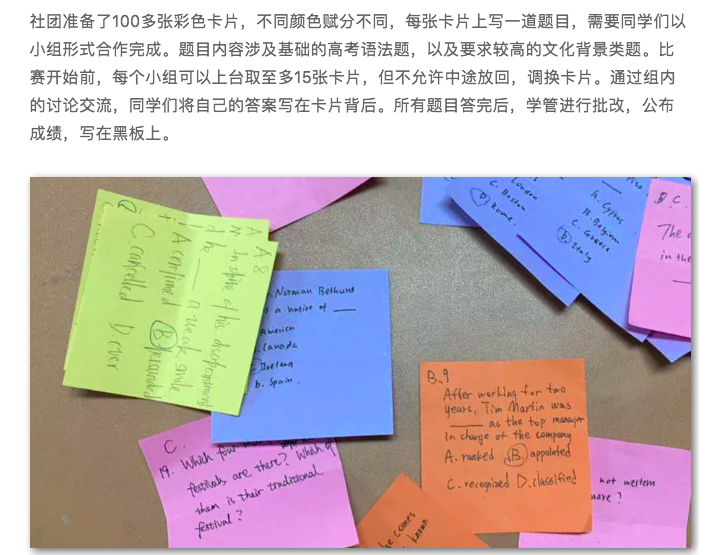 社团准备了100多张彩色卡片，不同颜色赋分不同，每张卡片上写一道题目，需要同学们以
小组形式合作完成。题目内容涉及基础的高考语法题，以及要求较高的文化背景类题。比
赛开始前，每个小组可以上台取至多15张卡片，但不允许中途放回，调换卡片。通过组内
的讨论交流，同学们将自己的答案写在卡片背后。所有题目答完后，学管进行批改，公布
成绩，写在黑板上。
A 8
In spite of his disappointment
d h ___ a weak smile
A confirmed B
C cancelled D over
Norman Bethune
a native of ___
America
Canada
Ireland
D. Spain.
C. London
C. Boston
D. Rome.
A. Cyprus
B. Belgium
C. Greece
D. Italy
C.
The
in the
B.9
After working for two
years, Tim Martin was
___ as the top manager
in charge of the company
A. ranked B. appointed
C. recognized D. classified
C.
19. Which four
festivals are there? Which of
them is their traditional
festival?
not western
he comes
known